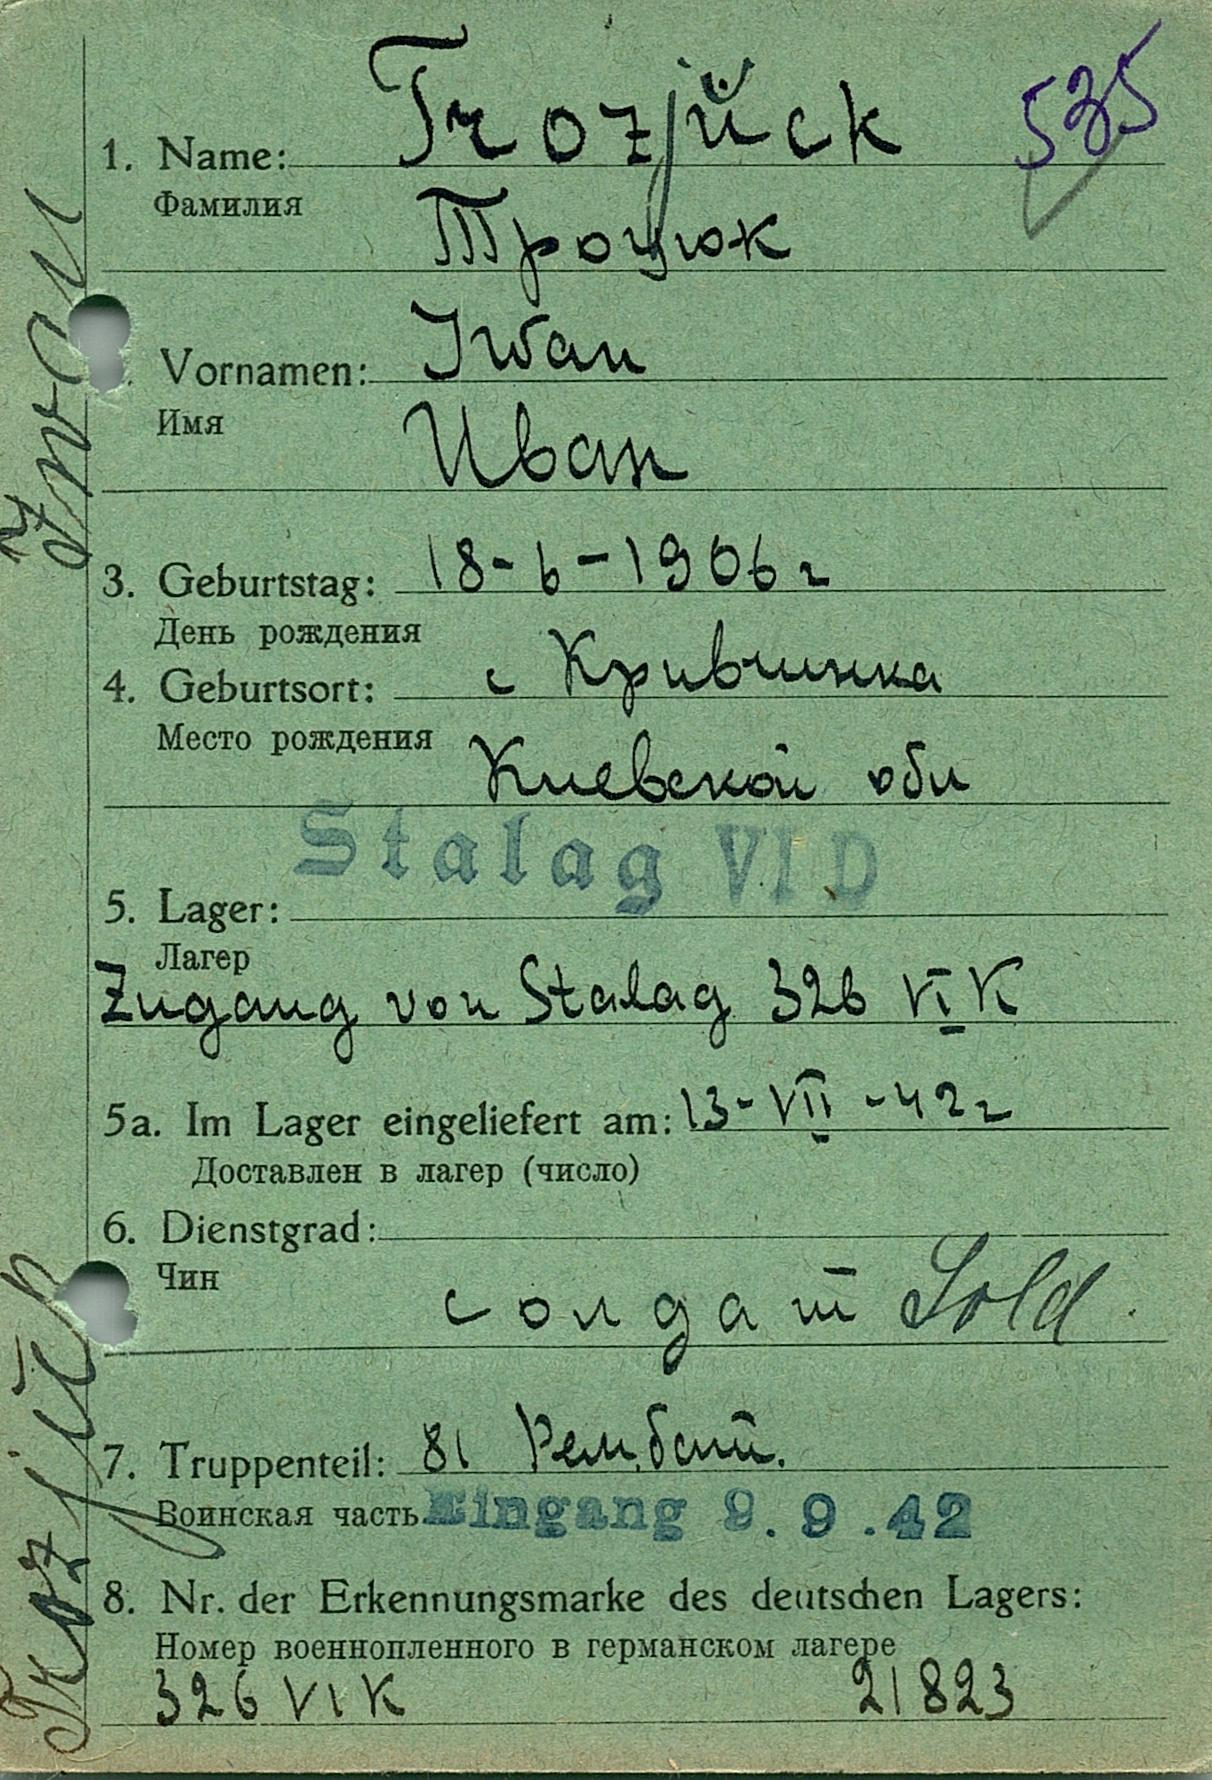 535
1. Name: Trozjück
Фамилия
Троцюк
Vornamen: Iwan
Имя
Иван
3. Geburtstag: 18-6-1906 г
День рождения
4. Geburtsort: с Кривчинка
Место рождения
Киевской обл
Stalag VI D
5. Lager:
Лагер
Zugang von Stalag 326 VI K
5a. Im Lager eingeliefert am: 13-VII-42 г
Доставлен в лагер (число)
6. Dienstgrad:
Чин
солдат Sold.
7. Truppenteil: 81 Рем.бат.
Воинская часть Eingang 9.9.42
8. Nr. der Erkennungsmarke des deutschen Lagers:
Номер военнопленного в германском лагере
326 VI K 21823
Trozjück Iwan